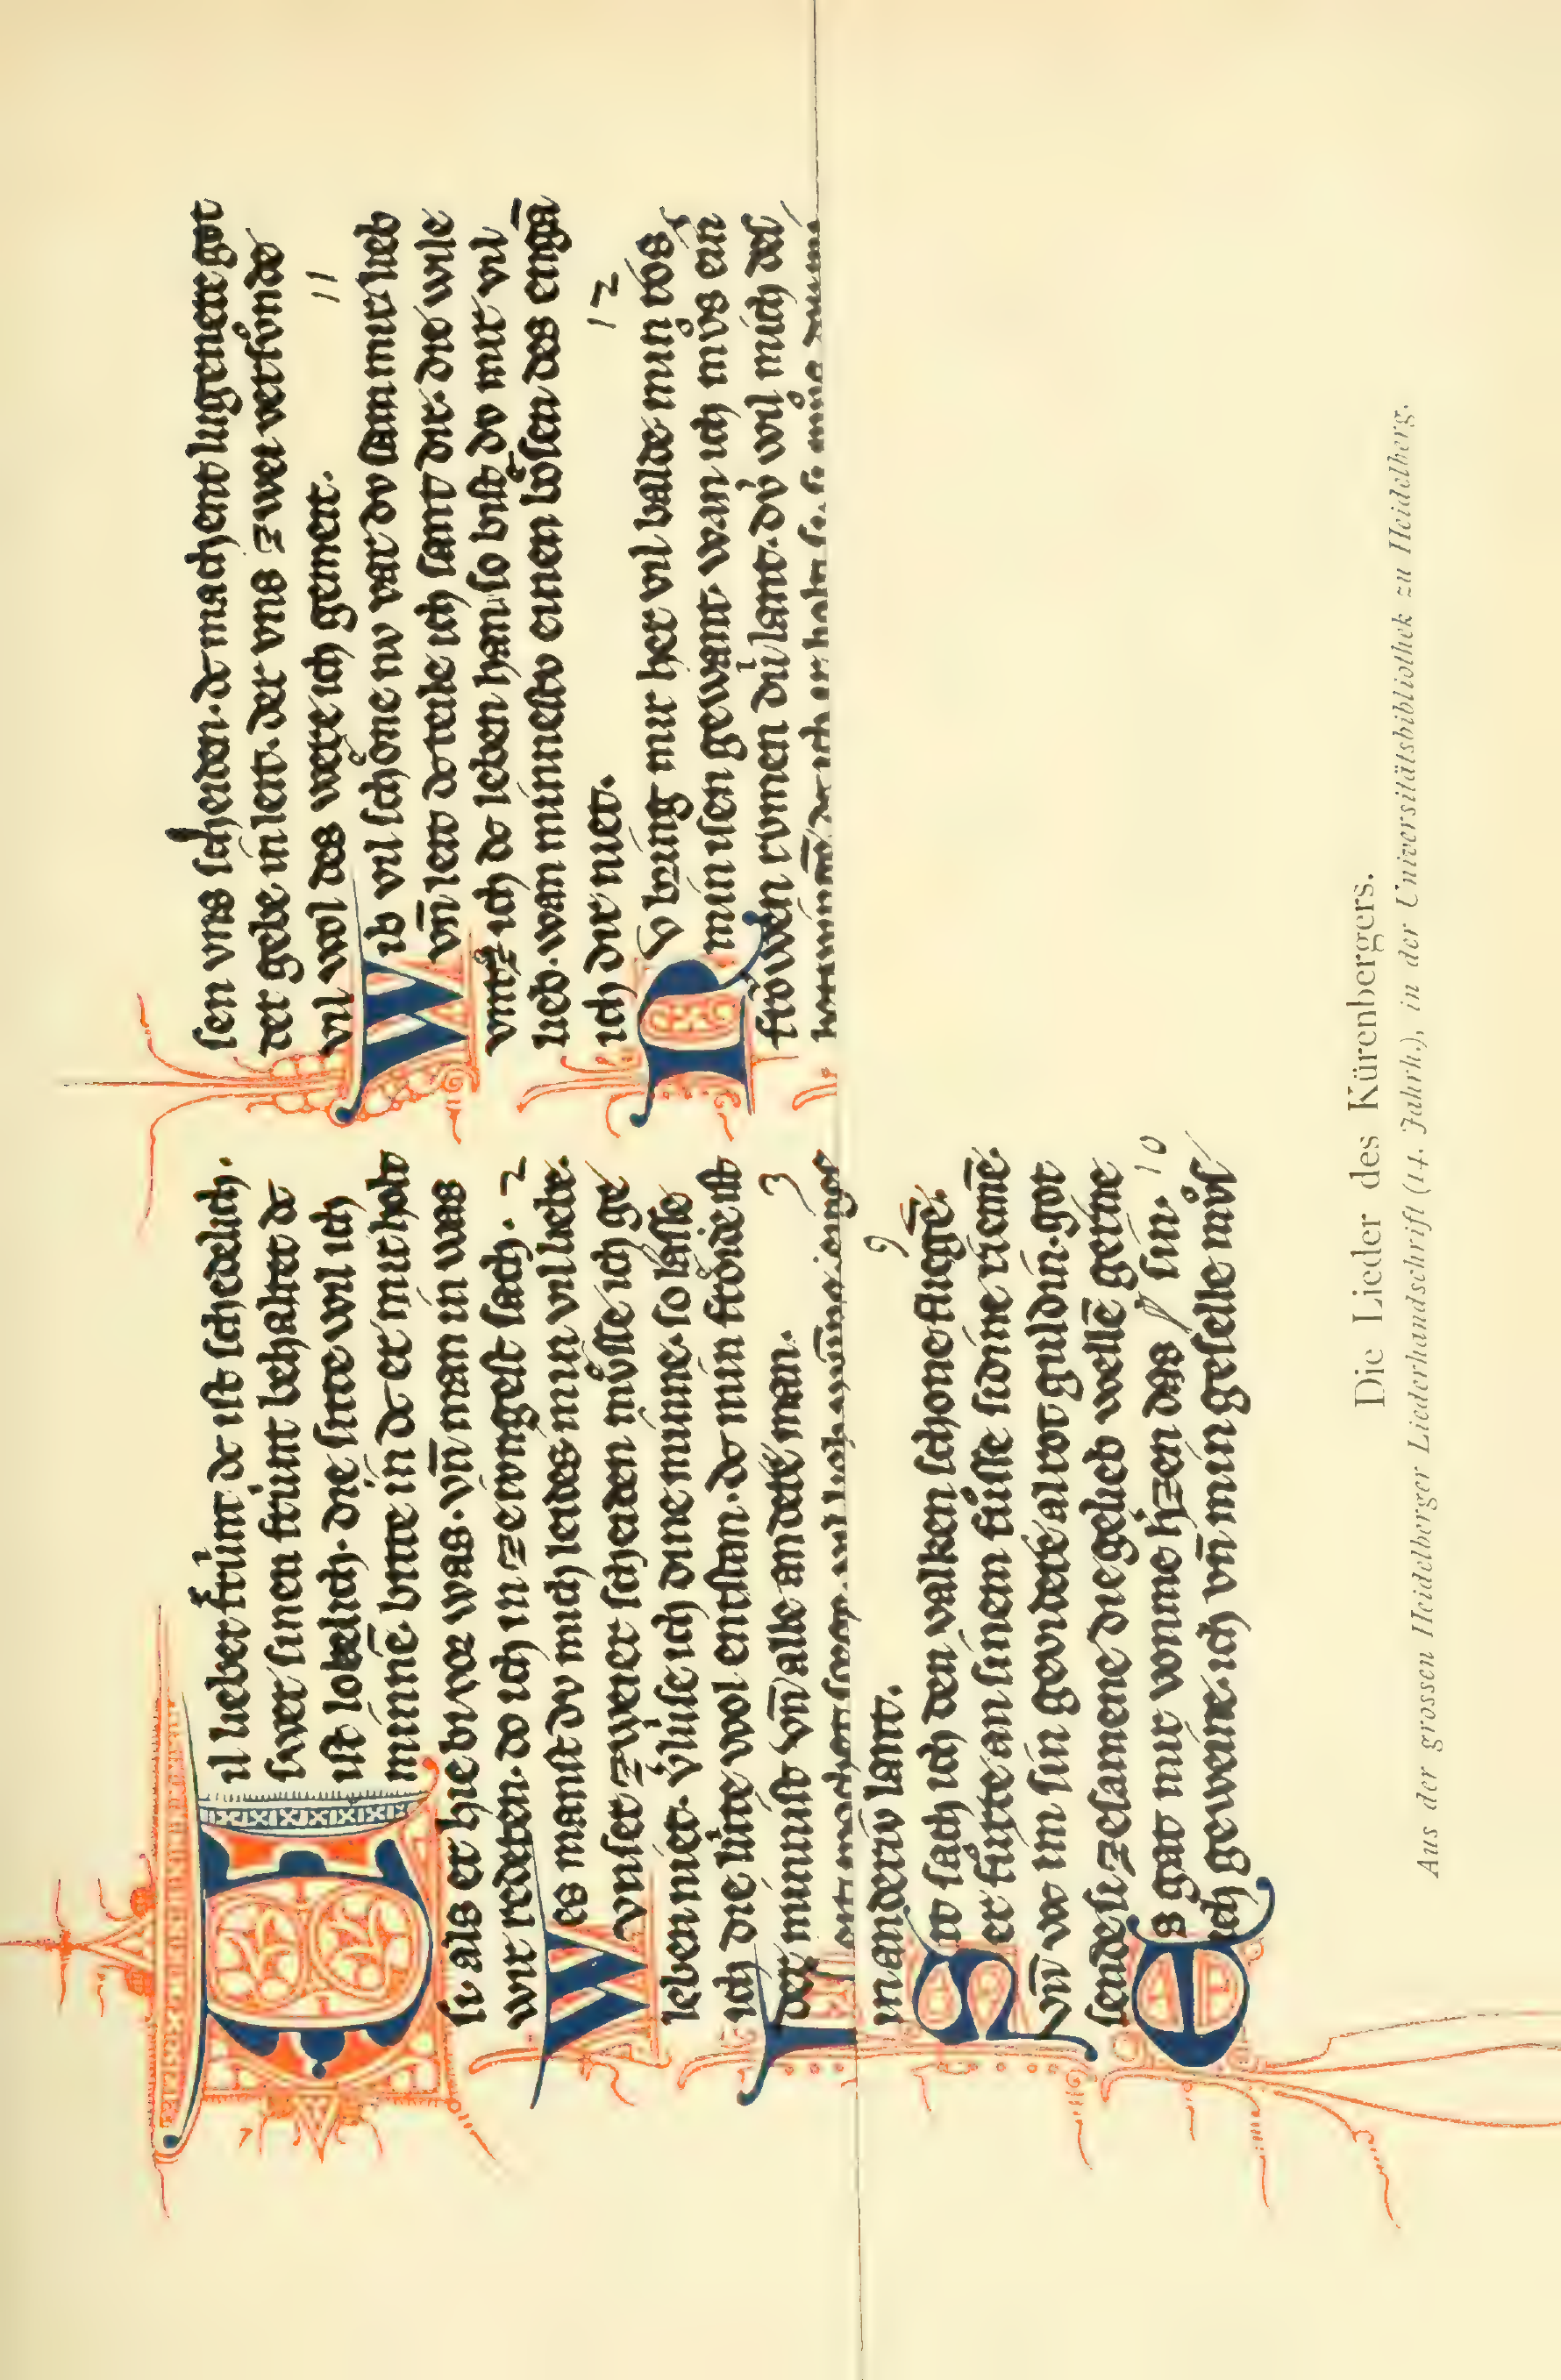 Vil lieber frúnt dc ist schedelich.
swer sinen frúnt behaltet dc
ist lobelich. die sitte wil ich
minnē. bitte in dc er mir holt
si als er hie bi vor was. vn̄ man in was
wir redeten. do ich in ze ivngest sach. 2
Wes manst dv mich leides min vil liebe.
vnser zweier scheiden mvͤsse ich ge
leben niet. verlúse ich dine minne. so lasse
ich die lúte wol entstan. dc min frōide ist
der minnist vn̄ alle andere man. 3
in anderiv lant. 9
Sit sach ich den valken schone fliegē.
er fuͦrte an sinem fuͦsse sidine riemē.
vn̄ wc im sin gevidere al rot guldin. got
sende si zesamene die gelieb wellē gerne
Es gat mir vonme h'zen das sin. 10
ich geweine. ich vn̄ min geselle mvͤs
sen vns scheiden. dc machent lugenere got
der gebe in leit. der vns zwei versvͦnde
vil wol des were ich gemeit. 11
Wib vil schoͤne nv var dv sam mir lieb
vn̄ leit dc teile ich sant dir. die wile
vntz ich dc leben han. so bist dv mir vil
lieb. wan minnestv einen boͤsen des engā
ich dir niet. 12
Nv bring mir her vil balde min ros
min isen gewant. wan ich mvͦs ein
frowen rvmen dú lant. dú wil mich des
Die Lieder des Kürenbergers.
Aus der grossen Heidelberger Liederhandschrift (14. Jahrh.), in der Universitätsbibliothek zu Heidelberg.